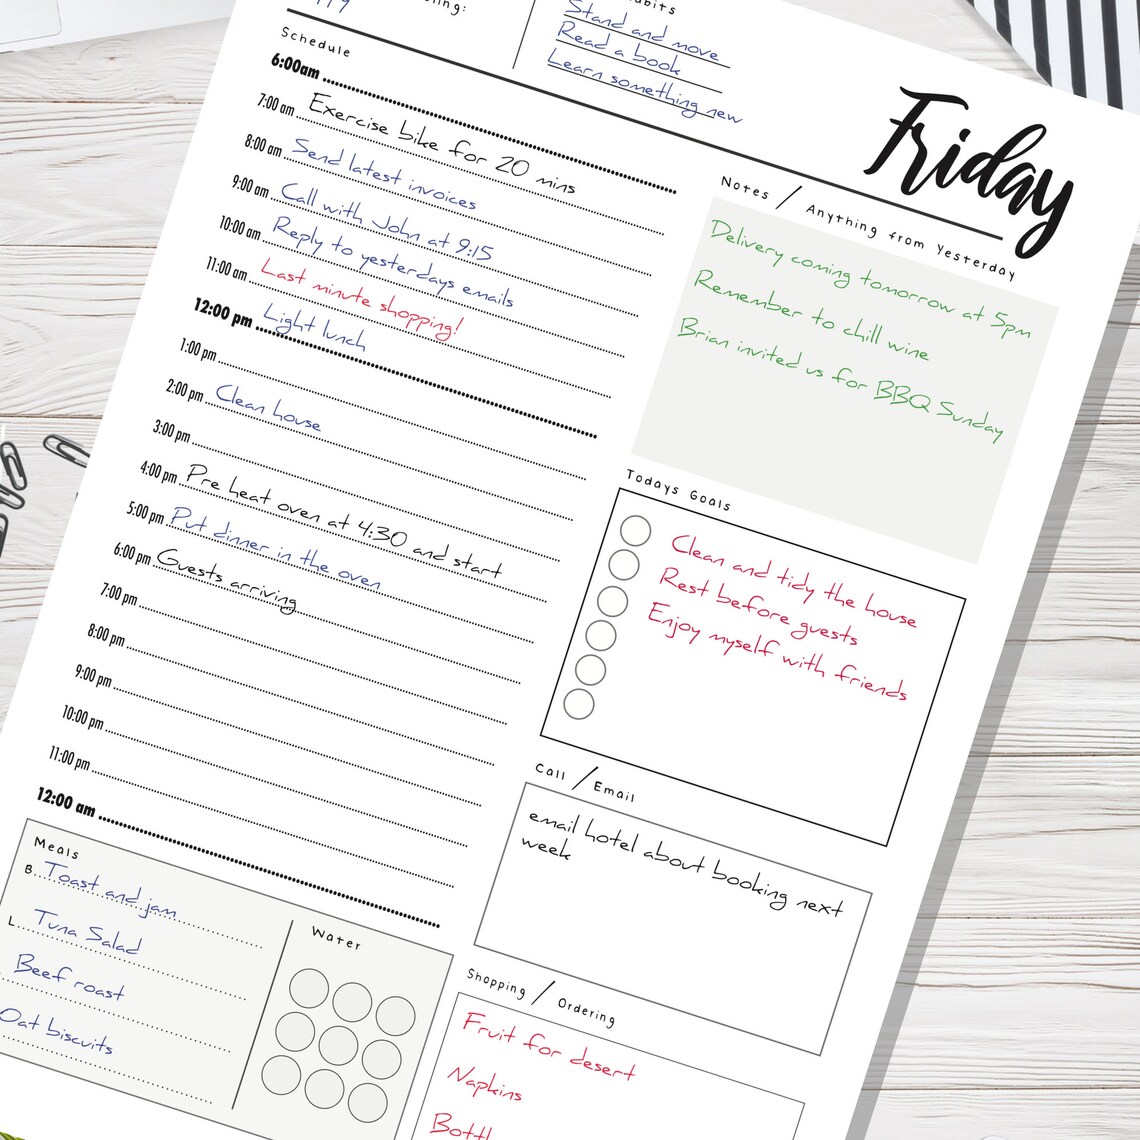 Stand and move
Read a book
Learn something new
Friday
Schedule
6:00am
7:00 am Exercise bike for 20 mins
8:00 am Send latest invoices
9:00 am Call with John at 9:15
10:00 am Reply to yesterdays emails
11:00 am Last minute shopping!
12:00 pm Light lunch
1:00 pm
2:00 pm Clean house
3:00 pm
4:00 pm Pre heat oven at 4:30 and start
5:00 pm Put dinner in the oven
6:00 pm Guests arriving
7:00 pm
8:00 pm
9:00 pm
10:00 pm
11:00 pm
12:00 am
Notes / Anything from Yesterday
Delivery coming tomorrow at 5pm
Remember to chill wine
Brian invited us for BBQ Sunday
Todays Goals
Clean and tidy the house
Rest before guests
Enjoy myself with friends
Call / Email
email hotel about booking next
week
Shopping / Ordering
Fruit for desert
Napkins
Bottl
Meals
B. Toast and jam
L. Tuna Salad
Beef roast
Oat biscuits
Water